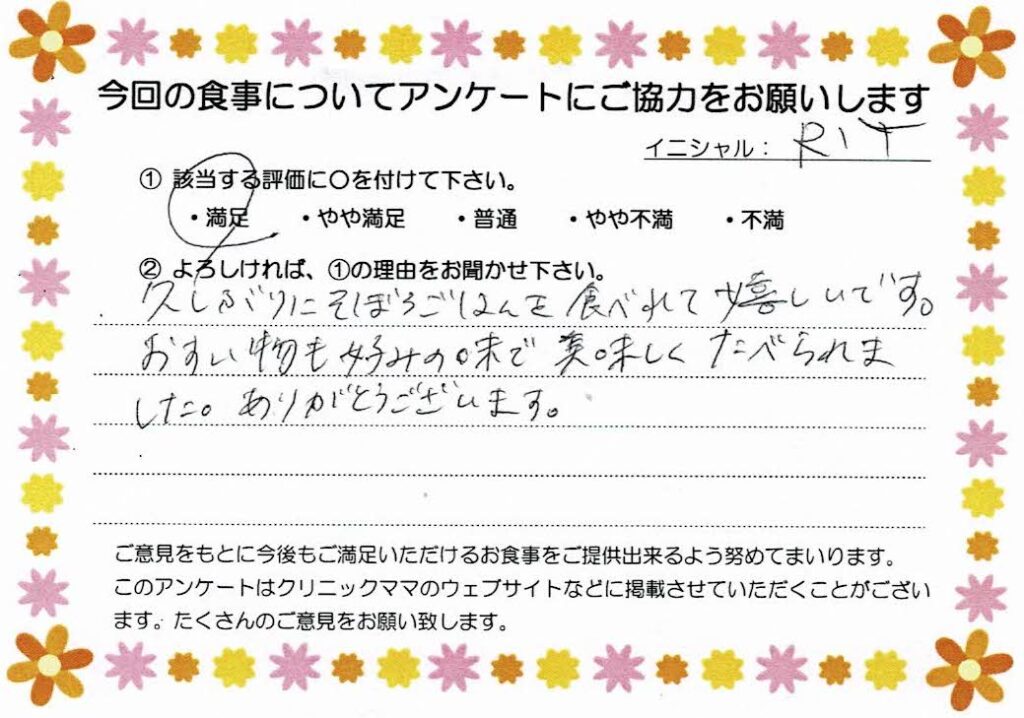 今回の食事についてアンケートにご協力をお願いします
イニシャル： RIT
① 該当する評価に〇を付けて下さい。
・満足 ・やや満足 ・普通 ・やや不満 ・不満
② よろしければ、①の理由をお聞かせ下さい。
久しぶりにそぼろごはんを食べれて嬉しいです。
おすい物も好みの味で美味しくたべられま
した。ありがとうございます。
ご意見をもとに今後もご満足いただけるお食事をご提供出来るよう努めてまいります。
このアンケートはクリニックママのウェブサイトなどに掲載させていただくことがござい
ます。たくさんのご意見をお願い致します。